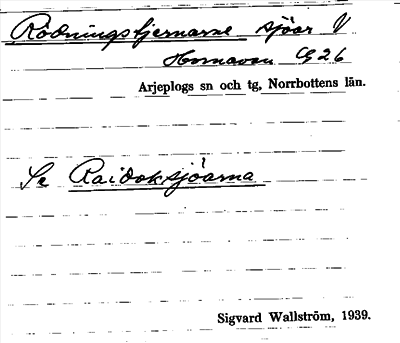 Rödningstjernarne sjöar V
Hornavan G26
Arjeplogs sn och tg, Norrbottens län.
Se Raidoksjöarna
Sigvard Wallström, 1939.